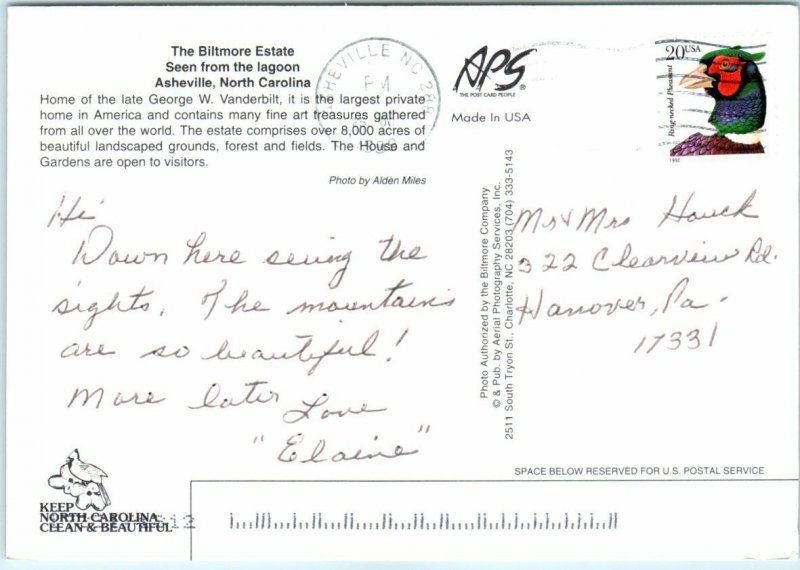 The Biltmore Estate
Seen from the lagoon
Asheville, North Carolina
Home of the late George W. Vanderbilt, it is the largest private
home in America and contains many fine art treasures gathered
from all over the world. The estate comprises over 8,000 acres of
beautiful landscaped grounds, forest and fields. The House and
Gardens are open to visitors.
Photo by Alden Miles
Hi
Down here seeing the
sights. The mountains
are so beautiful!
More later Love
"Elaine"
KEEP
NORTH CAROLINA
CLEAN & BEAUTIFUL
ASHEVILLE NC 288
PM
APS®
THE POST CARD PEOPLE
Made In USA
Photo Authorized by the Biltmore Company
© & Pub. by Aerial Photography Services, Inc.
2511 South Tryon St., Charlotte, NC 28203 (704) 333-5143
20USA
Ring-necked Pheasant
Mr & Mrs Houck
322 Clearview Rd.
Hanover, Pa.
17331
SPACE BELOW RESERVED FOR U.S. POSTAL SERVICE